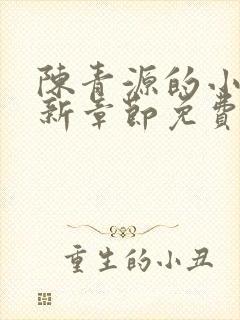 陳青源的小
新章節免費
重生的小丑